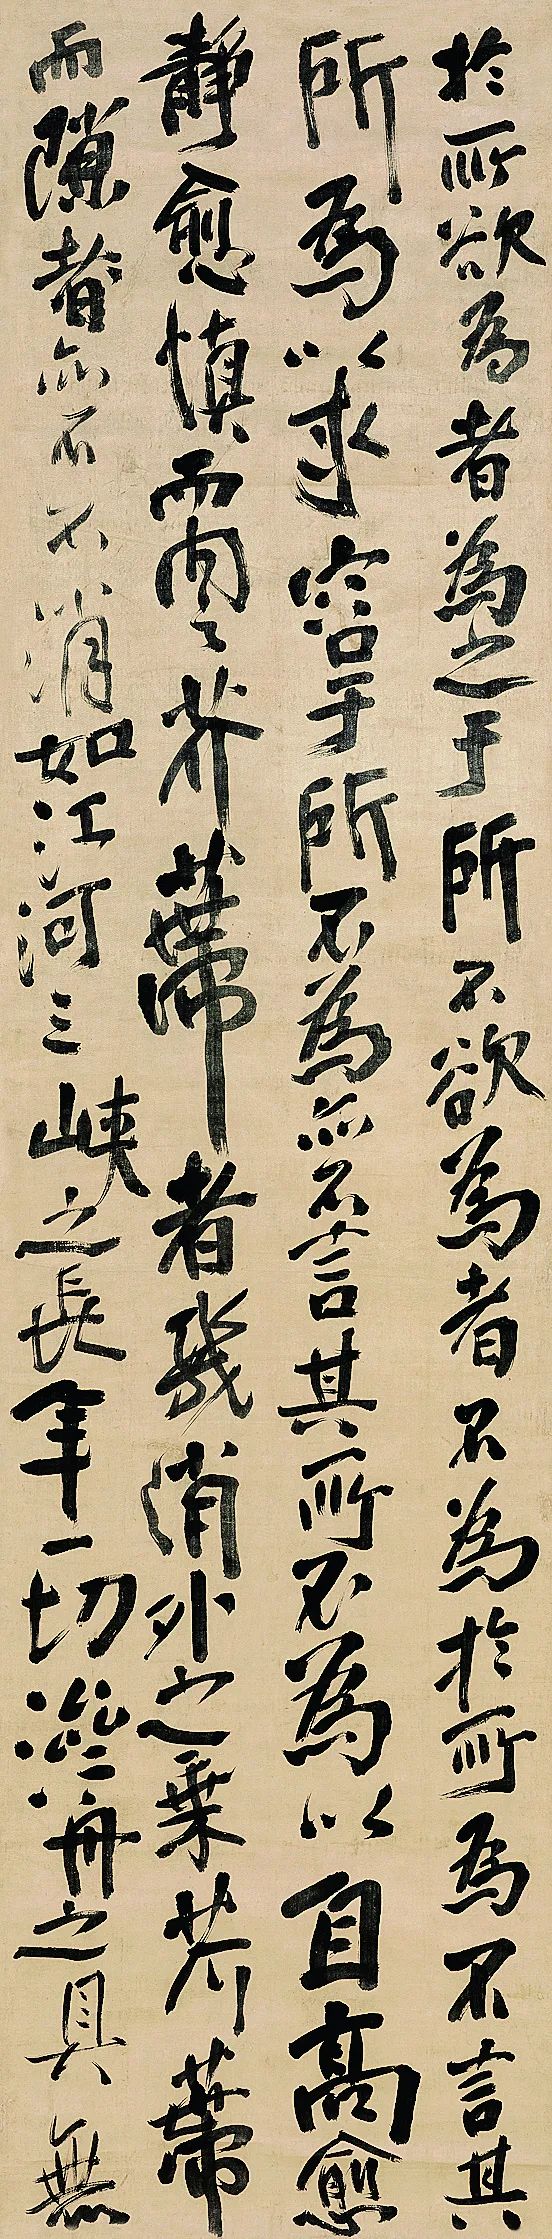 於所欲為者為之于所不欲為者不為於所為不言其
所為以求容于所不為亦不言其所不為以自高愈
靜愈慎而內之芥蒂者幾消外之乘芥蒂
而隙者亦不不消如江河三峽之長年一切濟舟之具無